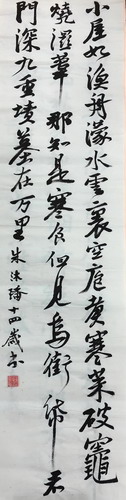 小屋如漁舟濛水雲裏空庖煮寒菜破竈
燒濕葦那知是寒食但見烏銜紙君
門深九重墳墓在万里 朱沐 十四歲書